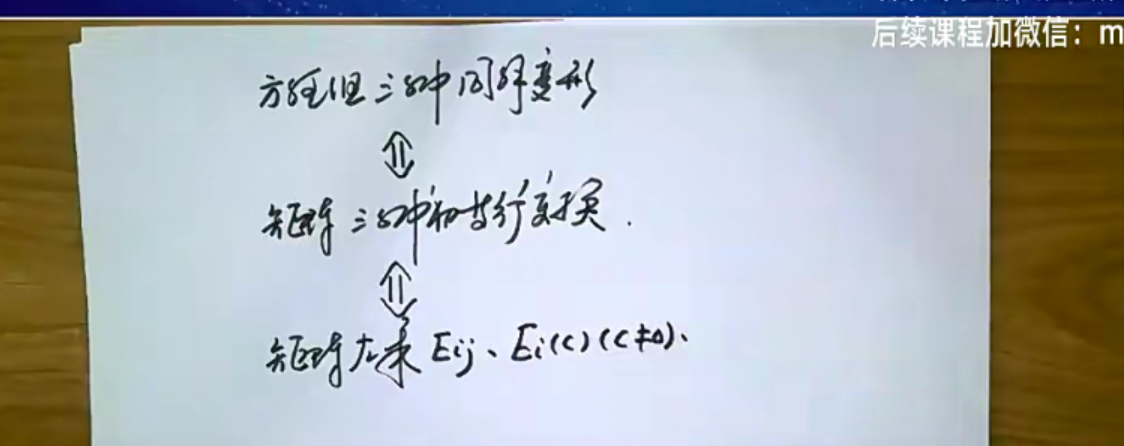 后续课程加微信：m
方程组三种同解变形
⇕
矩阵三种初等行变换.
⇕
矩阵左乘 Eij、Ei(c)(c≠0)、